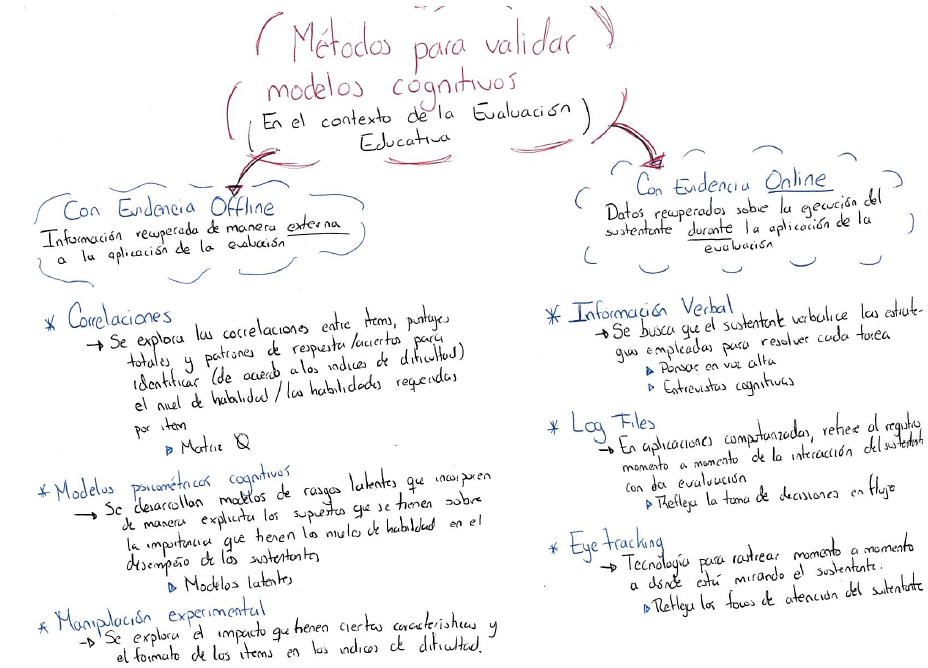 Métodos para validar
modelos cognitivos
En el contexto de la Evaluación
Educativa
Con Evidencia Offline
Información recuperada de manera externa
a la aplicación de la evaluación
* Correlaciones
→ Se explora las correlaciones entre ítems, puntajes
totales y patrones de respuesta/aciertos para
identificar (de acuerdo a los indices de dificultad)
el nivel de habilidad / las habilidades requeridas
por item
▷ Matriz Q
* Modelos psicométricos cognitivos
→ Se desarrollan modelos de rasgos latentes que incorporen
de manera explicita los supuestos que se tienen sobre
la importancia que tienen los niveles de habilidad en el
desempeño de los sustentantes
▷ Modelos latentes
* Manipulación experimental
→ Se explora el impacto que tienen ciertas características y
el formato de los items en los indices de dificultad.
Con Evidencia Online
Datos recuperados sobre la ejecución del
sustentante durante la aplicación de la
evaluación
* Información Verbal
→ Se busca que el sustentante verbalice las estrate-
gias empleadas para resolver cada tarea
▷ Pensar en voz alta
▷ Entrevistas cognitivas
* Log Files
→ En aplicaciones computarizadas, refiere al registro
momento a momento de la interacción del sustentante
con la evaluación
▷ Refleja la toma de decisiones en flujo
* Eye tracking
→ Tecnología para rastrear momento a momento
a dónde está mirando el sustentante.
▷ Refleja los focos de atención del sustentante